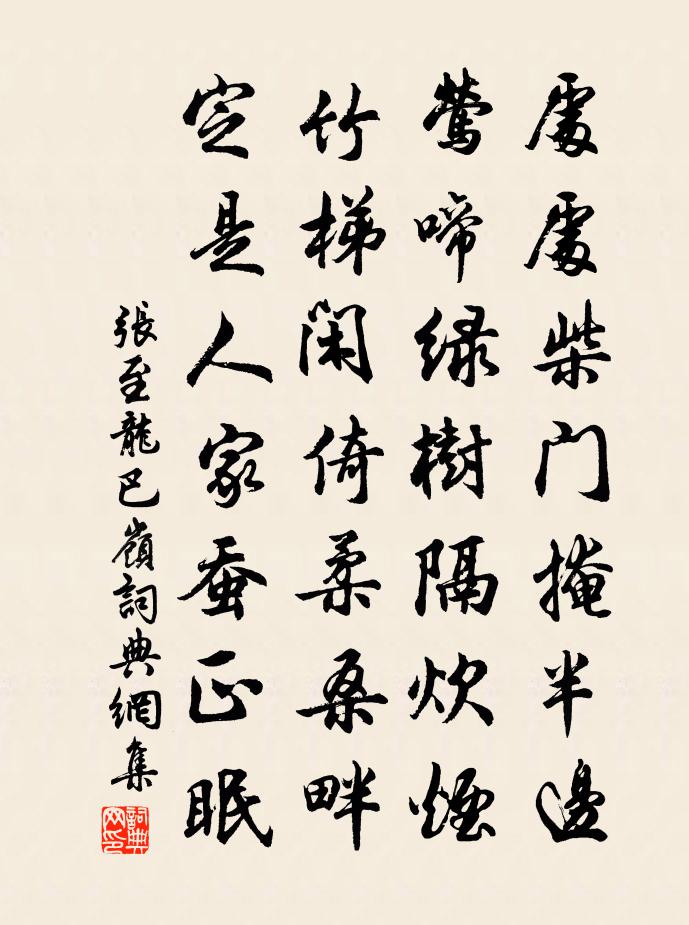 處處柴門掩半邊
鶯啼緑樹隔炊煙
竹梯閑倚柔桑畔
定是人家蚕正眠
張至龍巴嶺詞典網集
詞典网印